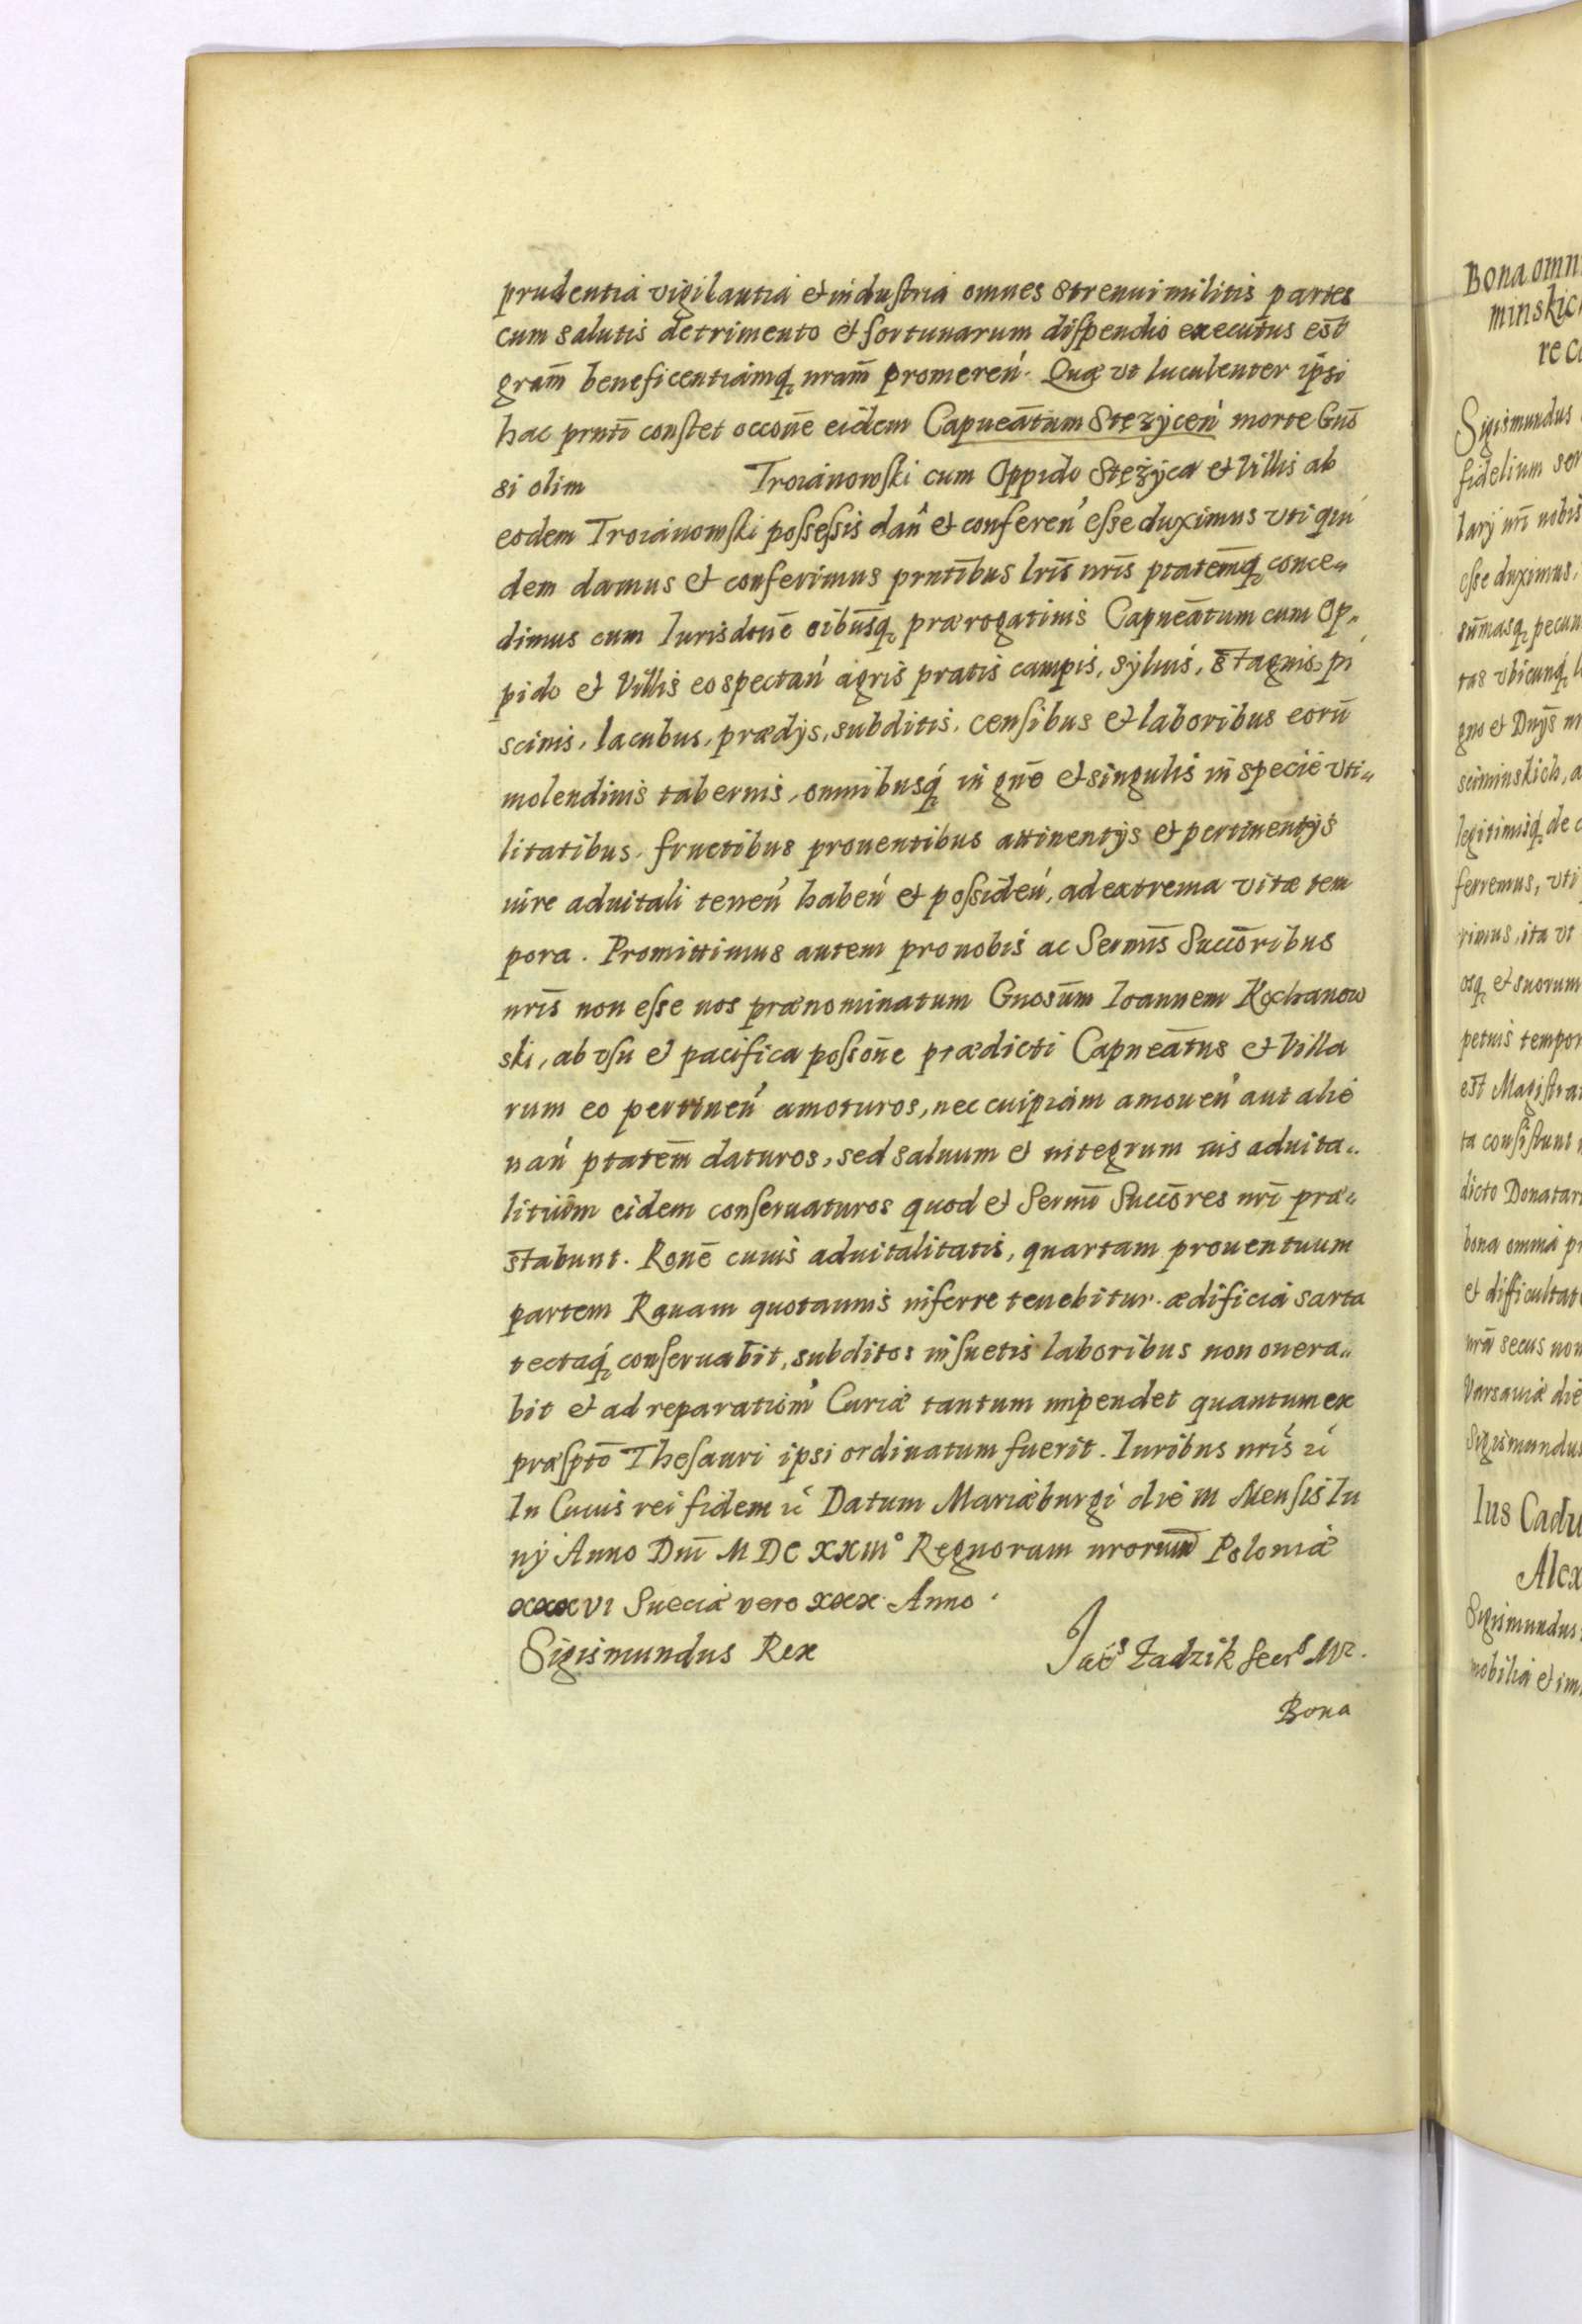 prudentia vigilantia et industria omnes strenui militis partes
cum salutis detrimento et fortunarum dispendio executus est
gram̄ beneficentiamq́ nram̄ promereń. Quæ vt luculenter ipsi
hac prnti constet occone eidem Capneatum Stężyceń morte Gno
si olim Troianowski cum Oppido Stężyca et Villis ab
eodem Troianowski possessis dań et confereń esse duximus vti qui
dem damus et conferimus prntibus lris nris ptatemq́ conce„
dimus cum Iurisdone oibusq́ prærogatiuis Capneatum cum Op„
pido et Villis eo spectań agris pratis campis, syluis, stagnis, pi
scinis, lacubus, prædijs, subditis, censibus et laboribus eorū
molendinis tabernis, omnibusq́ in gne et singulis in specie vti„
litatibus, fructibus prouentibus attinentijs et pertinentijs
iure aduitali teneń habeń et possideń, ad extrema vitæ tem
pora. Promittimus autem pro nobis ac Sermis Succoribus
nris non esse nos prænominatum Gnosum Ioannem Kochanow
ski, ab vsu et pacifica possone prædicti Capneatus et Villa
rum eo pertineń amoturos, nec cuipiam amoueń aut alie
nań ptatem daturos, sed saluum et integrum ius aduita„
litium eidem conseruaturos quod et Sermi Succores nri præ„
stabunt. Rone cuius aduitalitatis, quartam prouentuum
partem Rauam quotannis inferre tenebitur. ædificia sarta
tectaq́ conseruabit, subditos insuetis laboribus non onera„
bit et ad reparatiom Curiæ tantum impendet quantum ex
præspto Thesauri ipsi ordinatum fuerit. Iuribus nris
In Cuius rei fidem Datum Mariæburgi die III Mensis Iu
nij Anno Dni M DC XXIII° Regnorum nrorum Poloniæ
XXXVI Sueciæ vero XXX. Anno.
Sigismundus Rex Jacs Zadzik Secrs Mr.
Bona
Bona omn
minskic
re c
Sigismundus
fidelium ser
larij nri nobis
esse duximus,
sum̄asq́ pecun
tas vbicunq́
gno et Dnijs
sciminskich, a
legitimisq́ de
ferremus, vti
rimus, ita vt
osq́ et suorum
petuis tempor
est Magistra
ta consistunt
dicto Donatar
bona omnia
et difficultat
secus non
Varsauiæ die
Sigismundus
Ius Cadu
Alex
Sigismundus
mobilia et im